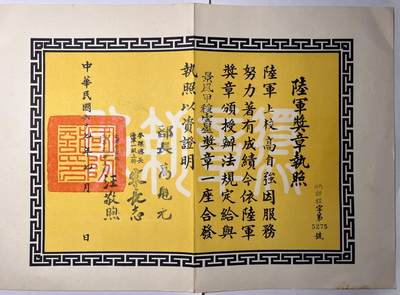 陸軍獎章執照
字第
5275
號
陸軍上校高自強因服務
努力著有成績今依陸軍
獎章頒授辦法規定給與
甲種獎章一座合發
執照以資證明
部長高魁元
參謀總長
宋長志
汪敬煦
中華民國 年 月 日